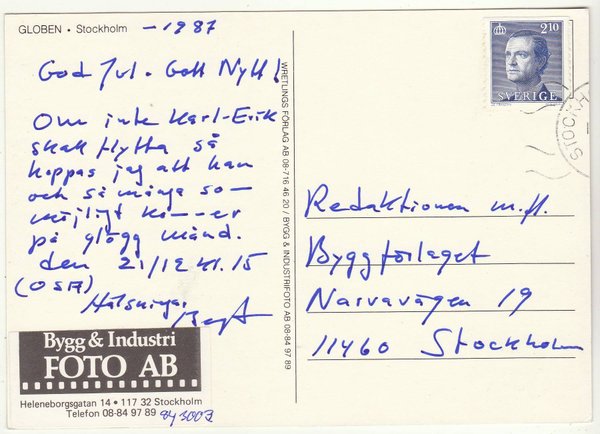 GLOBEN • Stockholm – 1987
God Jul. Gott Nytt!
Om inte Karl-Erik
skall flytta så
hoppas jag att han
och så många so–
möjligt ko––er
på glögg månd.
den 21/12 kl. 15
(OSA)
Hälsningar
Bengt
Bygg & Industri
FOTO AB
Heleneborgsgatan 14 • 117 32 Stockholm
Telefon 08-84 97 89
WRETLINGS FÖRLAG AB 08-716 46 20 / BYGG & INDUSTRIFOTO AB 08-84 97 89
210
SVERIGE
STOCKH
Redaktionen m.fl.
Byggförlaget
Narvavägen 19
11460 Stockholm